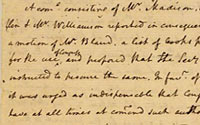 A com^e consisting of Mr. Madison.
flin & Mr. Williamson reported in consequence
a motion of Mr. Bland, a list of books p
for the use of Congs, and proposed that the Secy
instructed to procure the same. In favr. of
it was urged as indispensable that Cong
have at all times at comand such auth